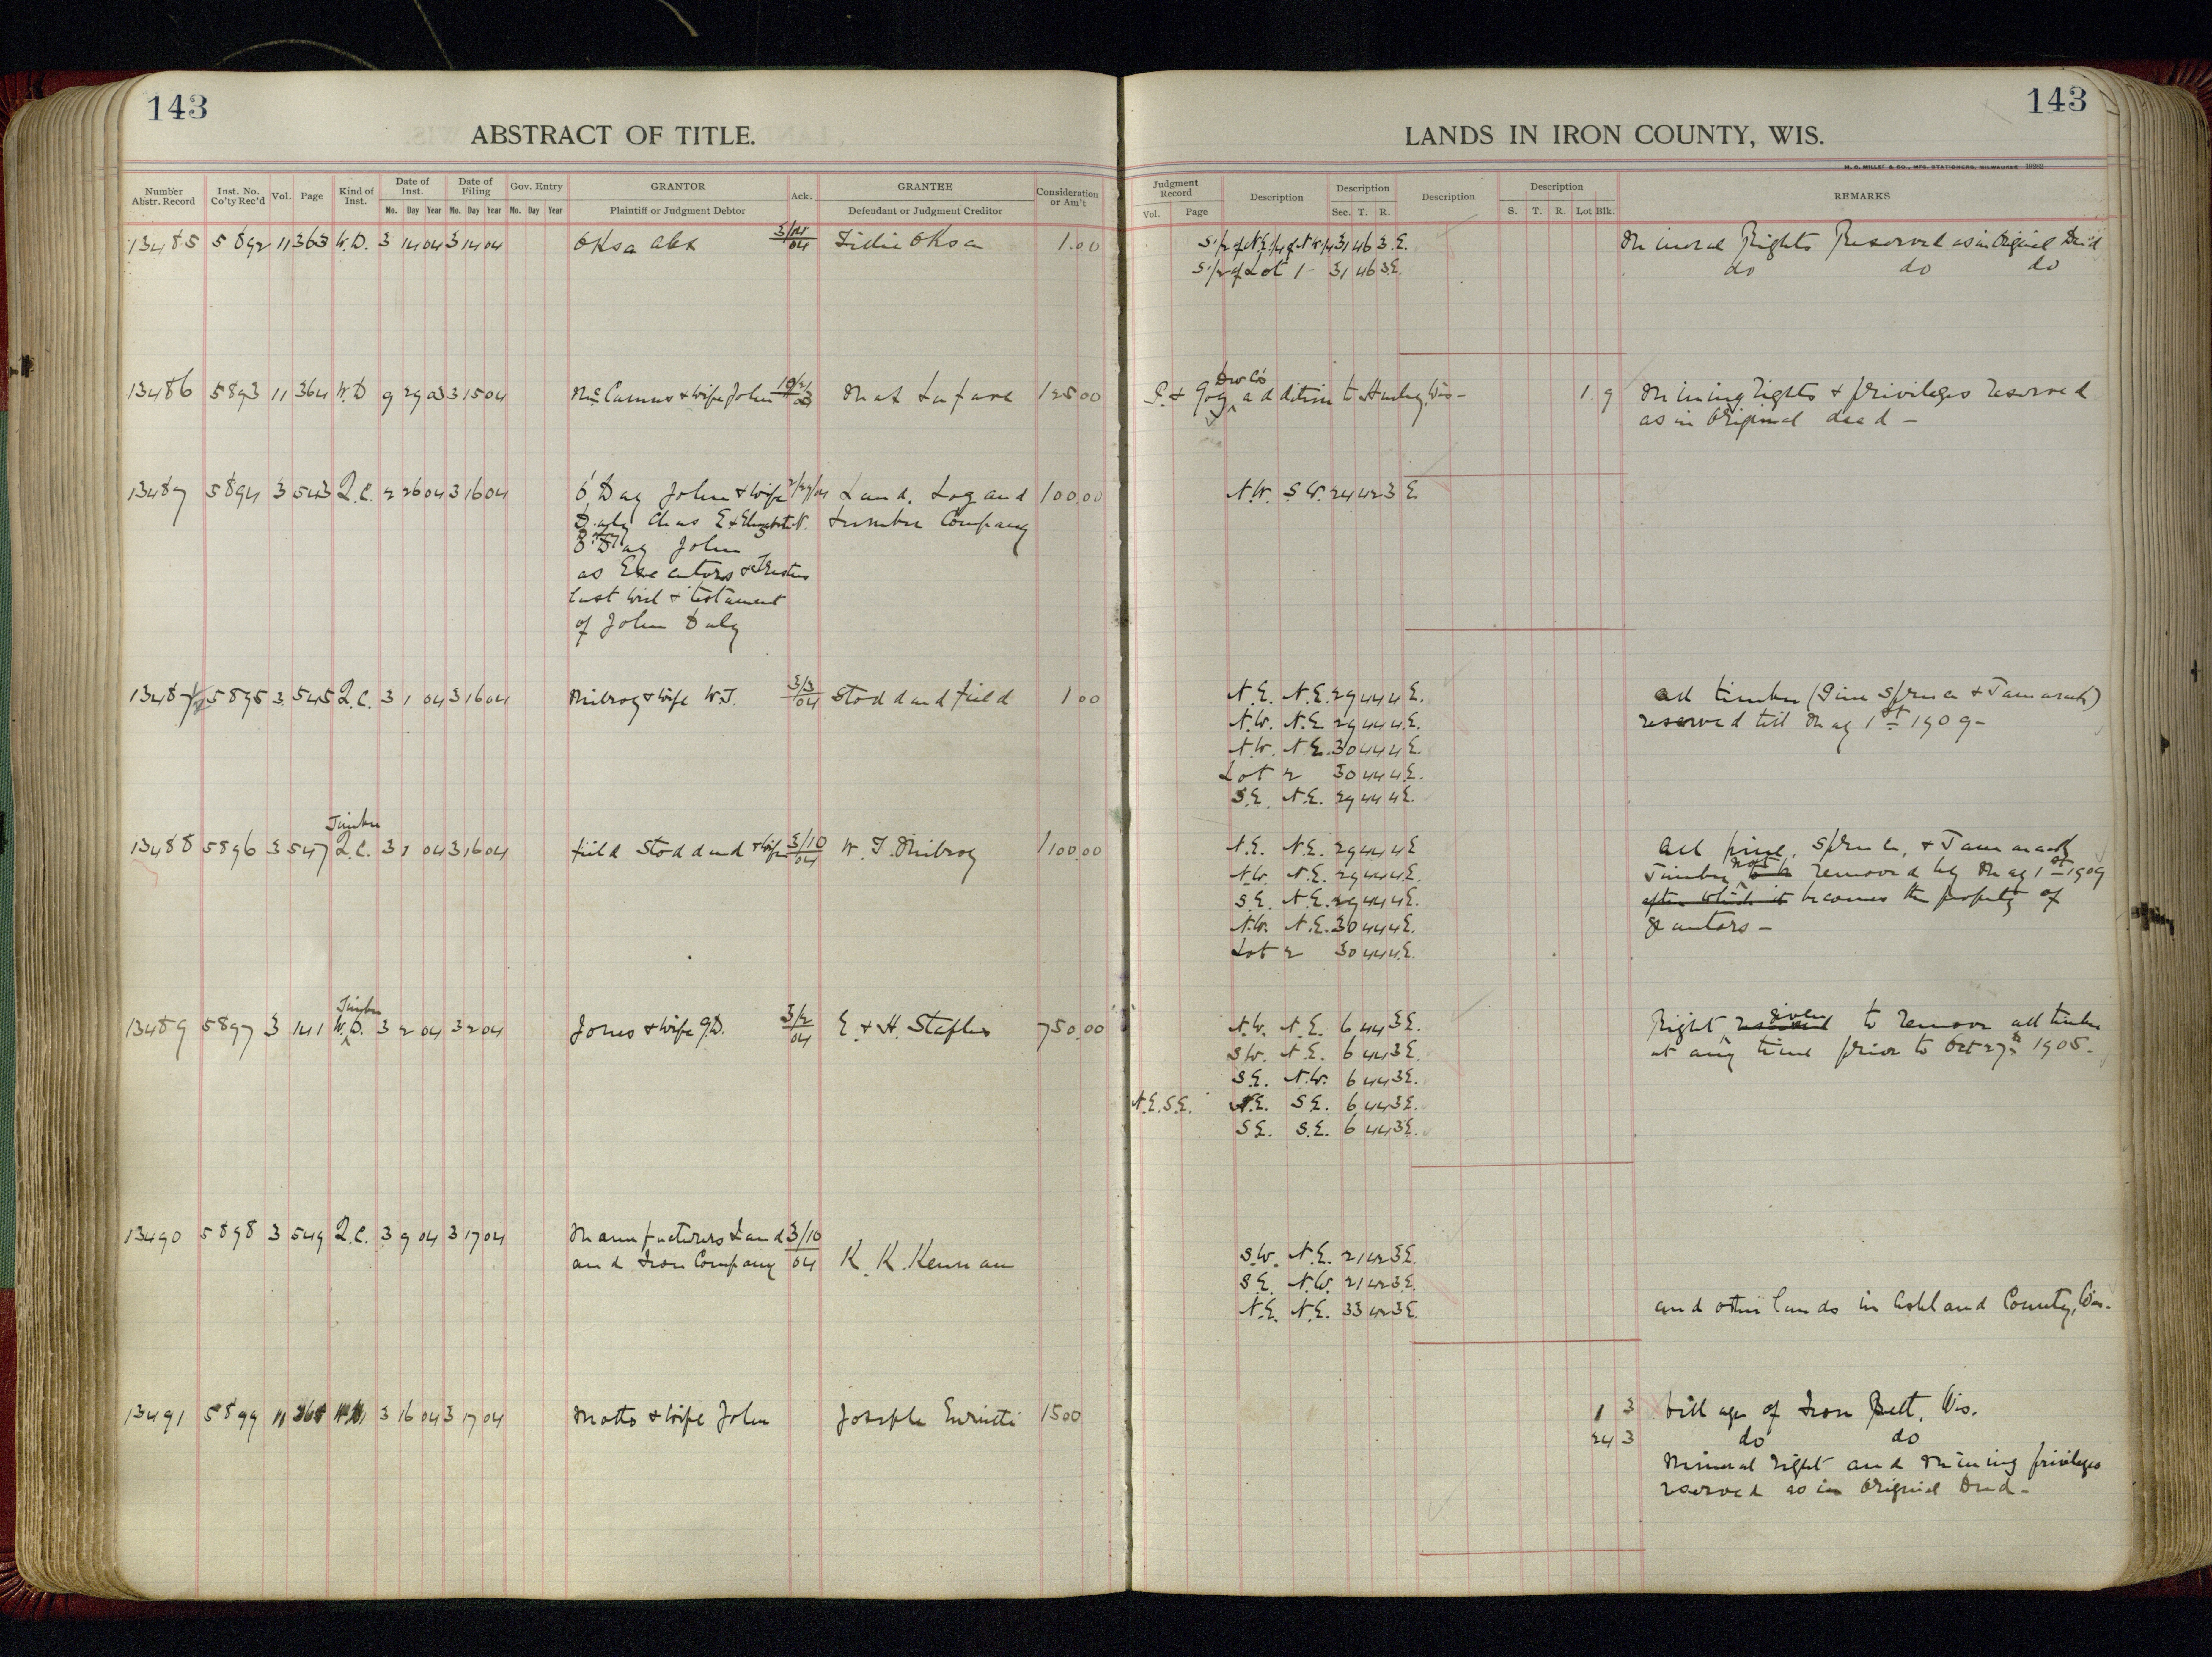 143
ABSTRACT OF TITLE.
Number Abstr. Record Inst. No. Co'ty Rec'd Vol. Page Kind of Inst. Date of Inst. Date of Filing Gov. Entry GRANTOR Ack. GRANTEE Consideration or Am't
Mo. Day Year Mo. Day Year Mo. Day Year Plaintiff or Judgment Debtor Defendant or Judgment Creditor
13485 5892 11 363 W.D. 3 14 04 3 14 04 Oksa Alex 3/14/04 Oksa 1.00
13486 5893 11 364 W.D 9 29 03 3 15 04 & wife John Mat 125 00
13487 5894 3 543 Q.C. 2 26 04 3 16 04 O'Day John & wife 2/27/04 Land, Log and 100.00
Daly Chas E. & Elizabeth Lumber Company
O'Day John
as Executors & Trustees
last will & testament
of John Daly
13487½ 5895 3 545 Q.C. 3 1 04 3 16 04 Milroy & wife W.T. 3/3/04 Stoddard Field 1 00
Timber
13488 5896 3 547 Q.C. 3 1 04 3 16 04 Field Stoddard & wife 3/10/04 W. T. Milroy 1100.00
Timber
13489 5897 3 141 W.D. 3 2 04 3 2 04 Jones & wife J.D. 3/2/04 E. & H. Staples 750.00
13490 5898 3 549 Q.C. 3 9 04 3 17 04 Manufacturers Land 3/10
and Iron Company 04 K. K. Kennan
13491 5899 11 365 W.D. 3 16 04 3 17 04 Motto & wife John Joseph 1500
143
LANDS IN IRON COUNTY, WIS.
H. C. MILLER & CO., MFG. STATIONERS, MILWAUKEE
Judgment Record Description Description Description Description REMARKS
Vol. Page Sec. T. R. S. T. R. Lot Blk.
S.1/2 of N.E.1/4 of N.W.1/4 31 46 3.E. Mineral Rights Reserved as in Original Deed
S.1/2 of Lot 1 31 46 3E. do do do
Dev Co's
P. & Gog addition to Hurley, Wis - 1 9 Mining rights & privileges reserved
as in Original deed -
N.W. S.W. 24 42 3 E.
N.E. N.E. 29 44 4 E. All timber (Pine Spruce & Tamarack)
N.W. N.E. 29 44 4.E. reserved till May 1st 1909-
N.W. N.E. 30 44 4 E.
Lot 2 30 44 4.E.
S.E. N.E. 29 44 4E.
N.E. N.E. 29 44 4E All pine, Spruce, & Tamarack
N.W. N.E. 29 44 4.E. Timber not to be removed by May 1st 1909
S.E. N.E. 29 44 4E. after which it becomes the property of
N.W. N.E. 30 44 4E. grantors -
Lot 2 30 44 4.E.
N.W. N.E. 6 44 3E. Right reserved given to remove all timber
S.W. N.E. 6 44 3E. at any time prior to Oct 27th 1905.
S.E. N.W. 6 44 3E.
N.E. S.E. N.E. S.E. 6 44 3E.
S.E. S.E. 6 44 3E.
S.W. N.E. 21 42 3E.
S.E. N.W. 21 42 3E.
N.E. N.E. 33 42 3E. and other lands in Ashland County, Wis.
1 3 Village of Iron Belt, Wis.
24 3 do do
Mineral right and Mining privileges
reserved as in Original Deed -